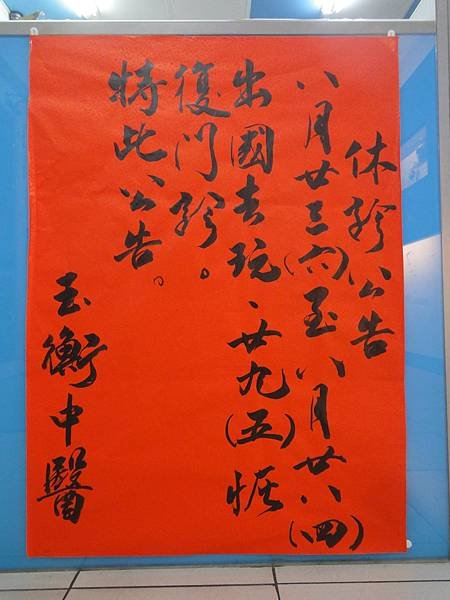 休診公告
八月廿三(六)至八月廿八(四)
出國去玩、廿九(五)恢
復門診。
特此公告。
玉衡中醫